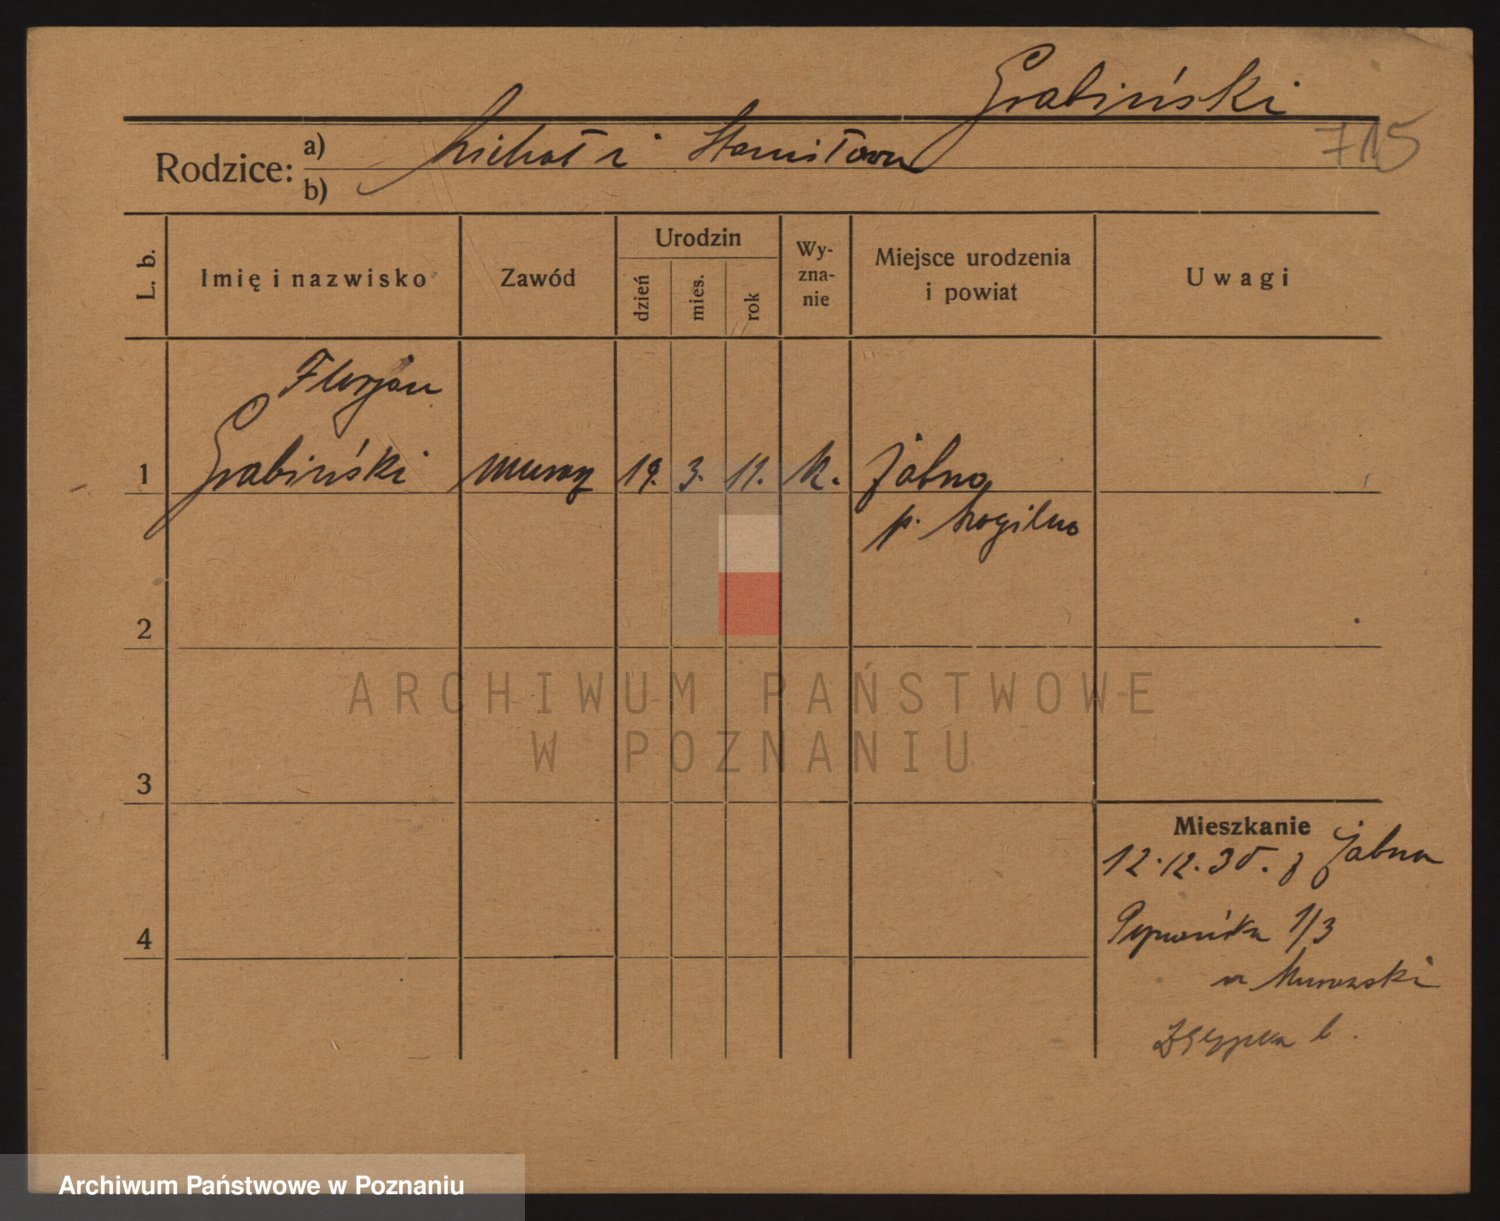 Grabiński
715
Rodzice: a) Michał i Stanisława
b)
L. b.
Imię i nazwisko
Zawód
Urodzin
dzień
mies.
rok
Wy-
zna-
nie
Miejsce urodzenia
i powiat
Uwagi
Florjan
1 Grabiński murarz 19. 3. 11. k. Żabno
p. Mogilno
2
3
4
Mieszkanie
12.12.30. z Żabna
1/3
u
ARCHIWUM PAŃSTWOWE
W POZNANIU
Archiwum Państwowe w Poznaniu